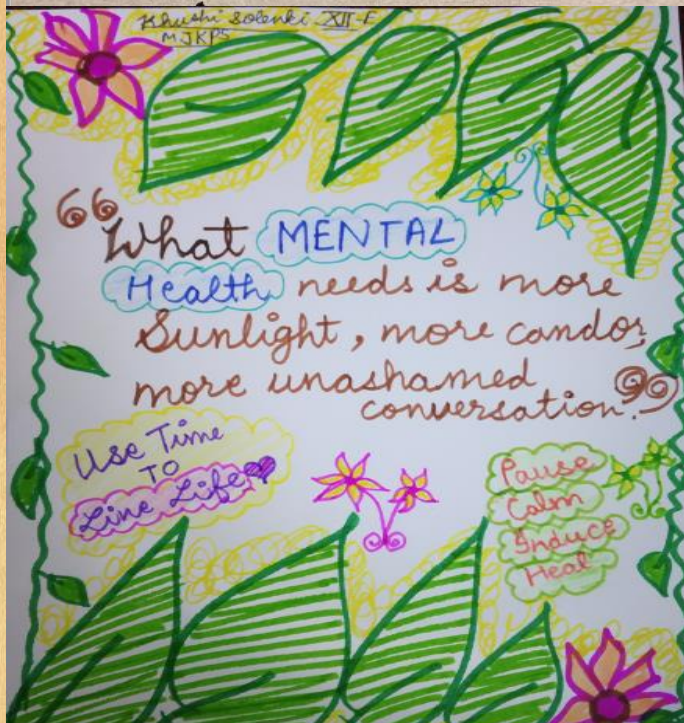 Khushi Solenki XII-E
MJKPS
“What MENTAL
Health needs is more
Sunlight, more candor,
more unashamed
conversation.”
Use Time
TO
Line Life
Pause
Calm
Induce
Heal